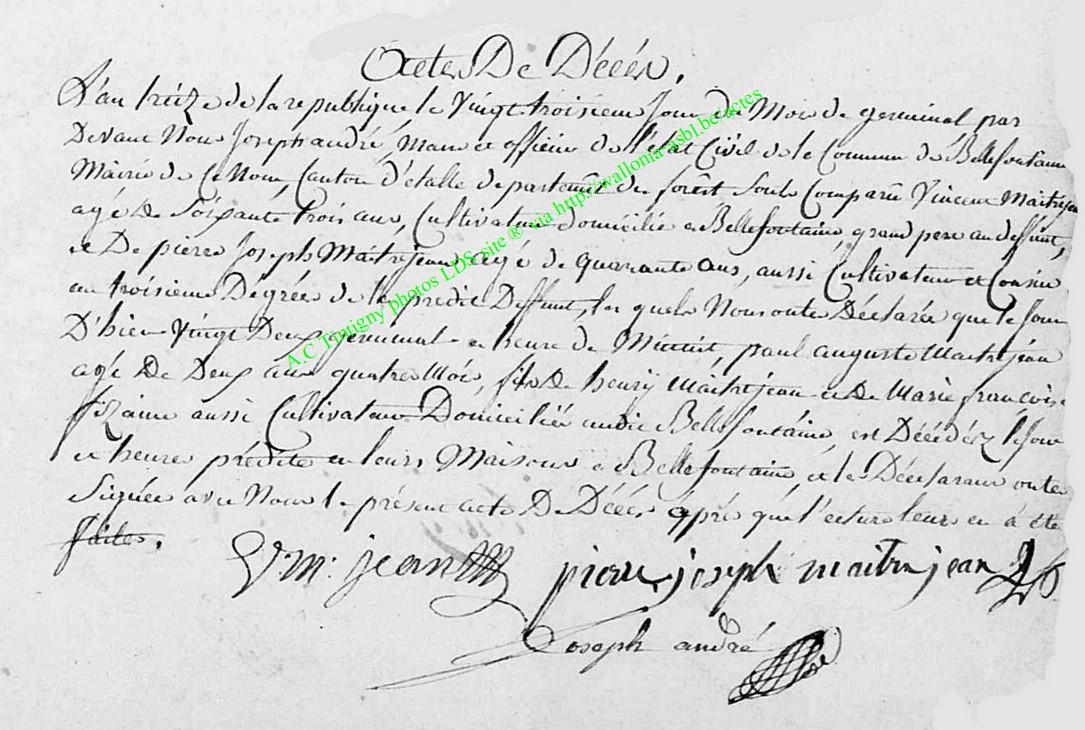 Actes De Décés.
L'an treize de la republique le vingt troisieme Jour du Mois de germinal par
Devant Nous Joseph andré, Maire et officier de l'etat Civil de la Commune de Bellefontaine
Mairie de Ce Nom, Canton d'étalle departement de forêt Sont Comparû Vincent Maitrejean
agé De Soixante trois ans, Cultivateur domicilié a Bellefontaine, grand pere au deffunt,
et De pierre Joseph Maitrejean agé de quarante ans, aussi Cultivateur et Cousin
au troisieme Dégrée de le predit Deffunt, les quels Nous onte Déclarée que le Jour
D'hier Vingt Deux germinal a heure de Minuit, paul auguste Maitrejean
agé De Deux ans quatre Mois, fils De henry Maitrejean et De Marie francoise
fizaine aussi Cultivateur Domiciliée audit Bellefontaine, est Décédéz le Jour
et heures prédite en leurs Maison a Bellefontaine et les Déclarans onte
Signée avec Nous le présent acte De Décés apprés que l'ecture leurs en à été
faites.
V m. jean pierre joseph maitre jean
Joseph andré
A.C Tintigny photos LDS site ® via http://wallonia-asbl.be/actes